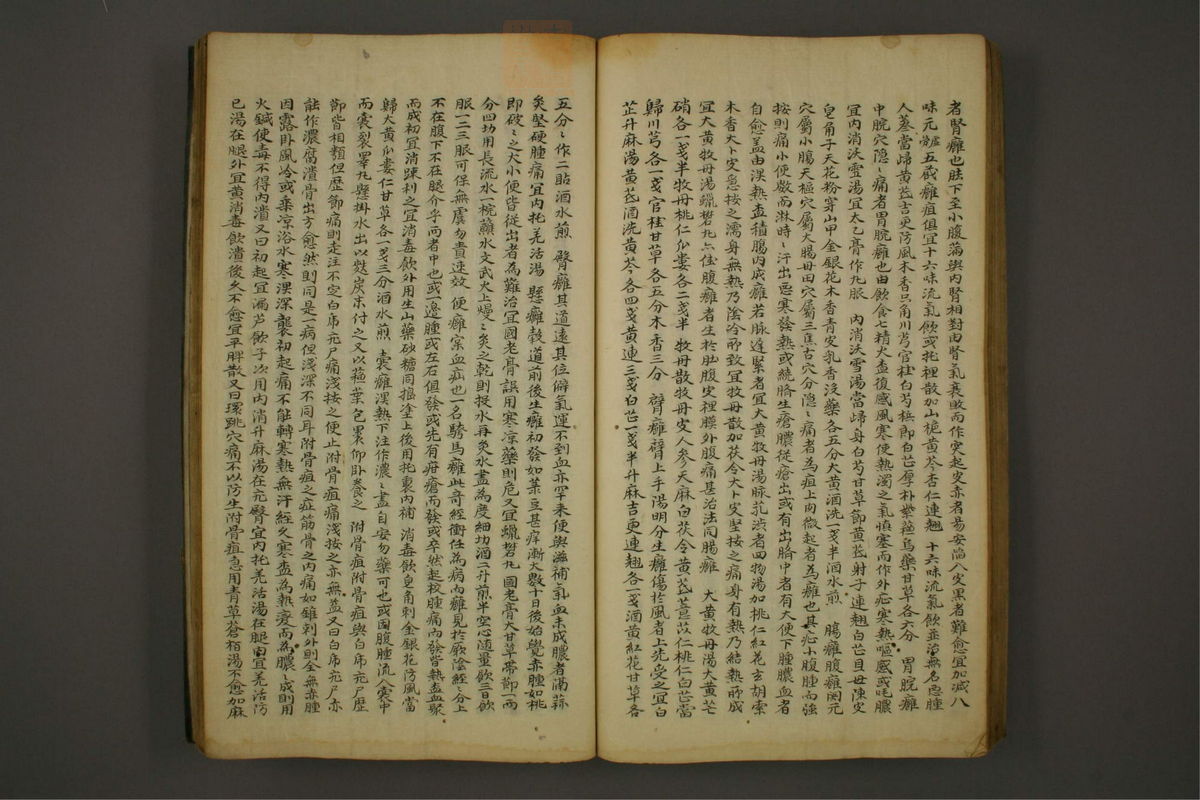 者腎癰也肚下至小腹滿與內腎相對由腎氣衰敗而作突起皮赤者易安陷八皮黑者難愈宜加減八
味元 五臟癰疽俱宜十六味流氣飮或托裡散加山梔黃芩杏仁連翹 十六味流氣飮並治無名惡腫
人參當歸黃芪吉更防風木香只角川芎官桂白芍檳郞白芷厚朴紫蘇烏藥甘草各六分 胃脘癰
中脘穴隐〻痛者胃脘癰也由飮食七精火盍復感風寒使熱濁之氣塡塞而作外疕寒熱嘔感或吐膿
宜內消沃雪湯宜太乙膏作丸服 內消沃雪湯當歸身白芍甘草節黃芪射子連翹白芷貝母陳皮
皂角子天花粉穿山甲金銀花木香青皮乳香沒藥各五分大黃酒洗一戔半酒水煎 腸癰腹癰関元
穴屬小腸天樞穴屬大腸丹田穴屬三焦古穴分隐〻痛者為疽上肉微起者為癰也其疕小腹腫而强
按則痛小便數而淋時〻汗出惡寒發熱或繞臍生瘡膿從瘡出或有出臍中者有大便下腫膿血者
自愈盖由湿熱盍積腸內成癰若脉遲緊者宜大黃牧母湯脉芤澁者四物湯加桃仁紅花玄胡索
木香大卜皮惡按之濡身無熱乃陰冷所致宜牧母散加茯令大卜皮堅按之痛身有熱乃結熱所成
宜大黃牧母湯蠟礬丸六佳腹癰者生於肚腹皮裡膜外腹痛甚治法同腸癰 大黃牧母湯大黃芒
硝各一戔半牧母桃仁瓜婁各二戔半 牧母散牧母皮人參天麻白茯令黃芪薏苡仁桃仁白芷當
歸川芎各一戔官桂甘草各五分木香三分 臂癰臂上手陽明分生癰傷於風者上先受之宜白
芷升麻湯黃芪酒洗黃芩各四戔黃連三戔白芷一戔半升麻吉更連翹各一戔酒黃紅花甘草各
五分〻作二貼酒水煎 臀癰其道遠其位僻氣運不到血亦罕来便與滋補氣血未成膿者滿蒜
灸堅硬腫痛宜內托羌活湯 懸癰穀道前後生癰初發如葉豆甚痒漸大數十日後始覺赤腫如桃
即破〻之大小便皆從出者為難治宜國老膏誤用寒凉藥則危又宜蠟礬丸 國老膏大甘草帶節一兩
分四切用長流水一椀蘸水文武火上慢〻炙之乾則捉水再炙水盡為度細切酒二升煎半空心隨量飮三日飮
服一二三服可保無虞勿責速效 便癰宲血疝也一名騎馬癰此奇經衝任為病而癰見於厥陰經〻分上
不在腹下不在腿介乎兩者中也或一邊腫或左右俱發或先有疳瘡而發或卒然起核腫痛而發皆熱盍血聚
而成初宜消踈利之宜消毒飮外用生山藥砂糖同搗塗上後用托裏內補 消毒飮皂角刺金銀花防風當
歸大黃瓜婁仁甘草各一戔三分酒水煎 囊癰湿熱下注作濃〻盡自安勿藥可也或囙腹腫流入囊中
而囊裂睾丸懸掛水出以麩炭末付之又以蘓葉包裹仰卧養之 附骨疽附骨疽與白帍元尸歷
節皆相類但歷節痛則走注不空白帍元尸痛淺按之便止附骨疽痛淺按之亦無盖又曰白帍元尸亦
能作濃腐潰骨出方愈然則同是一病但淺深不同耳附骨疽之症筋骨之內痛如錐刺外則全無赤腫
因露卧風冷或乘凉浴水寒湿深襲初起痛不能轉寒熱無汗經久寒盍為熱变而為膿〻成則用
火鍼使毒不得內潰又曰初起宜漏芦飮子次用內消升麻湯在元臀宜內托羌活湯在腿內宜羌活防
已湯在腿外宜黃消毒飮潰後久不愈宜平胖散又曰環跳穴痛不以防生附骨疽急用青草蒼栢湯不愈加麻